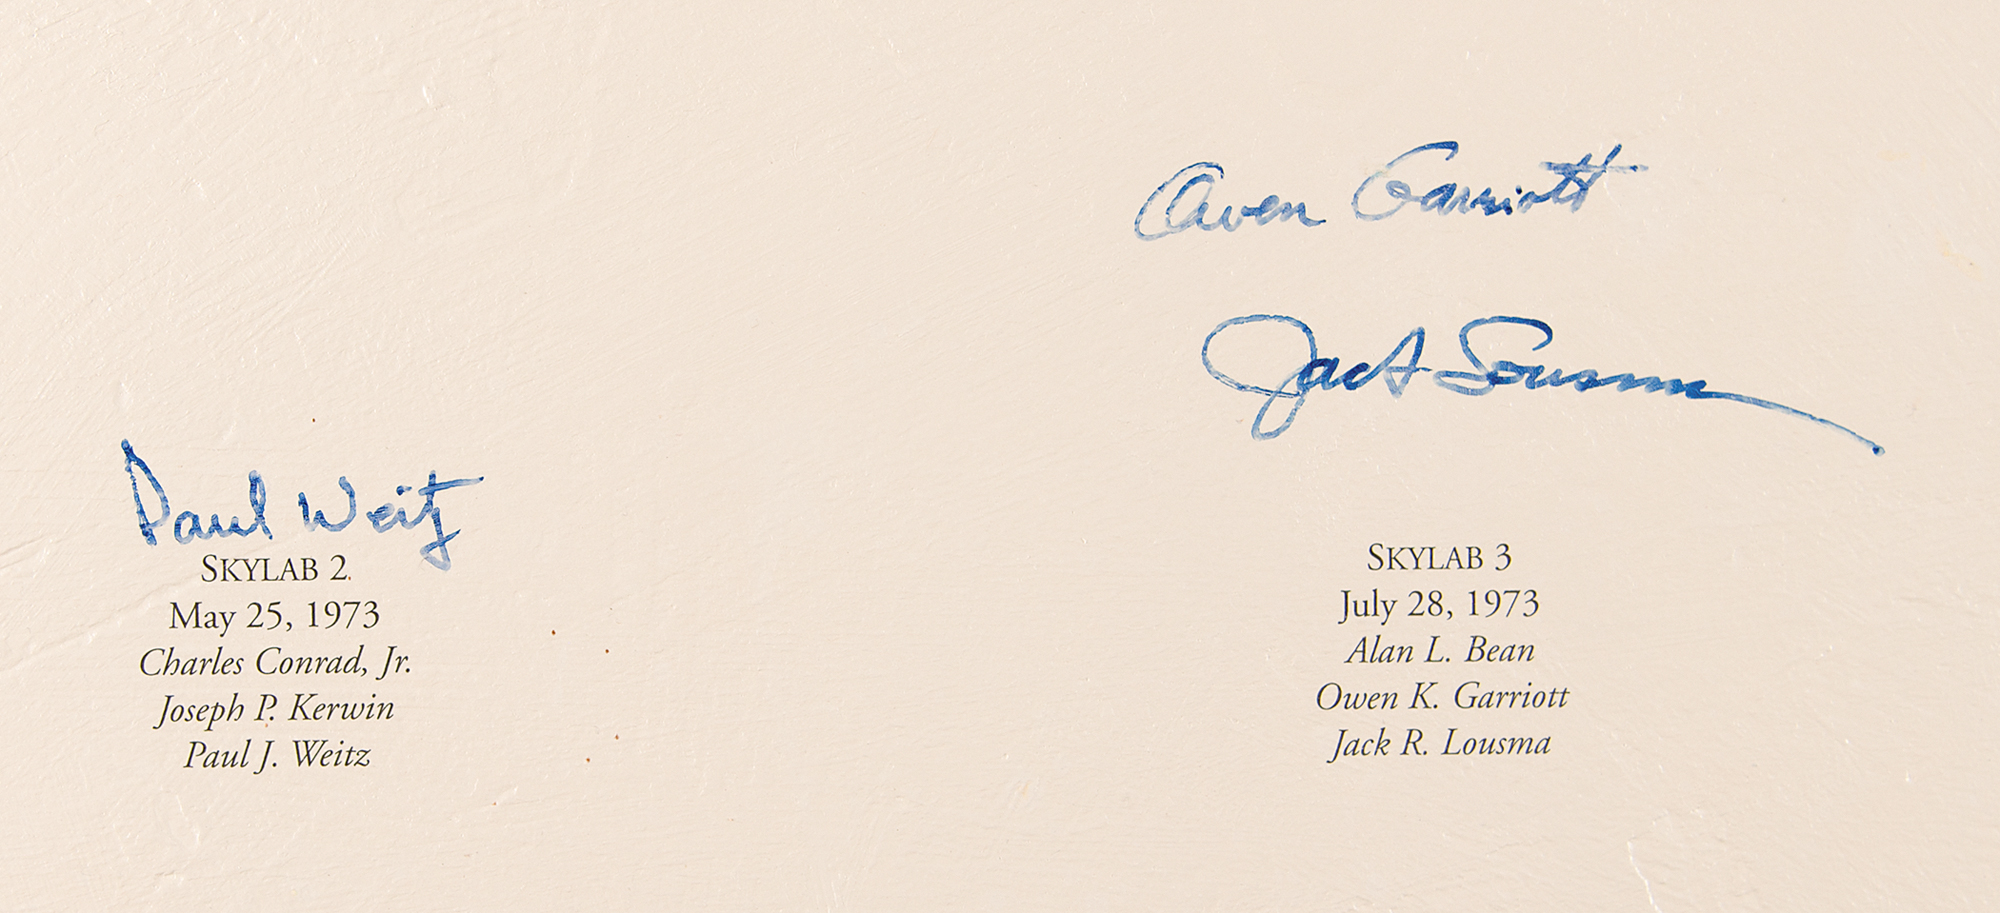 Paul Weitz
SKYLAB 2
May 25, 1973
Charles Conrad, Jr.
Joseph P. Kerwin
Paul J. Weitz
Owen Garriott
Jack Lousma
SKYLAB 3
July 28, 1973
Alan L. Bean
Owen K. Garriott
Jack R. Lousma